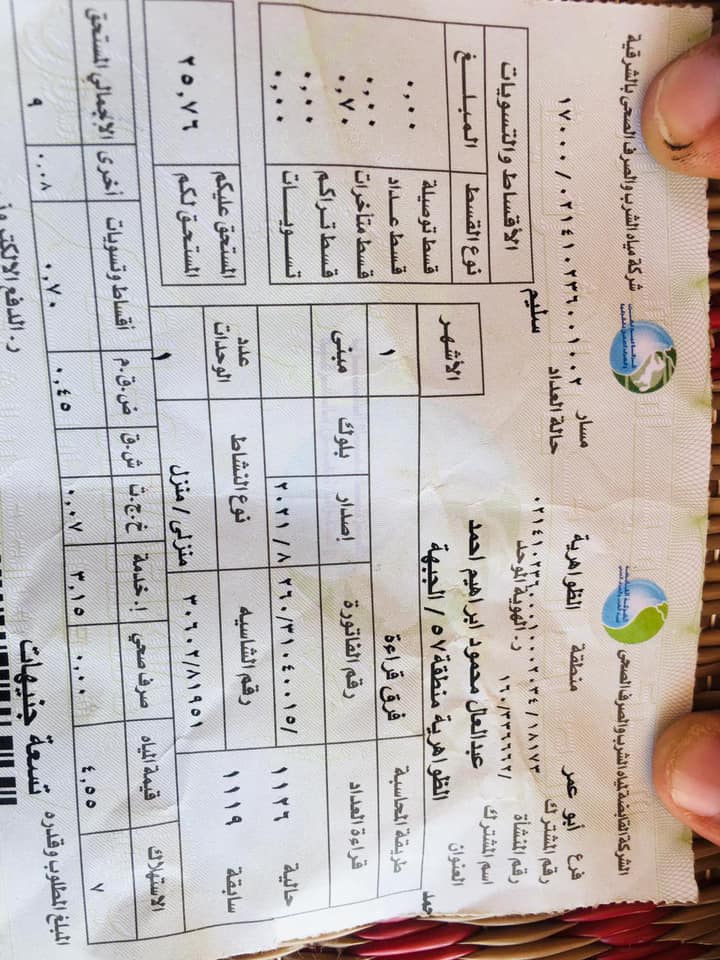 الشركة القابضة لمياه الشرب والصرف الصحى
شركة مياه الشرب والصرف الصحى بالشرقية
فرع أبو عمر منطقة الظواهرية مسار ١٧٠٠٠/٠٢١٤١٠٢٣٦٠٠١٠٠٢
رقم المشترك ٠٢١٤١٠٢٣٦٠٠١٠٠٠٢٠٣٤/١٨١٧٣ حالة العداد
رقم المنشأة ١٦٠/٣٣٦٦٦٢/ ر. الهوية الموحد سليم
اسم المشترك عبدالعال محمود ابراهيم احمد احمد
العنوان الظواهرية منطقة ٥٧ / الجبهة
طريقة المحاسبة فرق قراءة الأشهر ١
قراءة العداد رقم الفاتورة إصدار بلوك مبنى
حالية ١١٢٦ ٢٦٠/٣١٠٤٠٠١٥/ ٢٠٢١/٨
سابقة ١١١٩ رقم الشاسيه نوع النشاط عدد الوحدات
٣٠٦٠٢/٨١٩٥١ منزلى / منزل ١
الأقساط والتسويات
نوع القسط المبلغ
قسط توصيلة ٠,٠٠
قسط عداد ٠,٠٠
قسط متأخرات ٠,٧٠
قسط تراكم ٠,٠٠
تسويات ٠,٠٠
المستحق عليكم ٢٥,٧٦
المستحق لكم
الاستهلاك قيمة المياه صرف صحي ا. خدمة خ.ج.ث ش.ق ض.ق.م أقساط وتسويات أخرى الإجمالي المستحق
٧ ٤,٥٥ ٠,٠٠ ٣,١٥ ٠,٠٧ ٠,٤٥ ٠,٧٠ ٠,٠٨ ٩
المبلغ المطلوب وقدره تسعة جنيهات
ر. الدفع الالكتروني